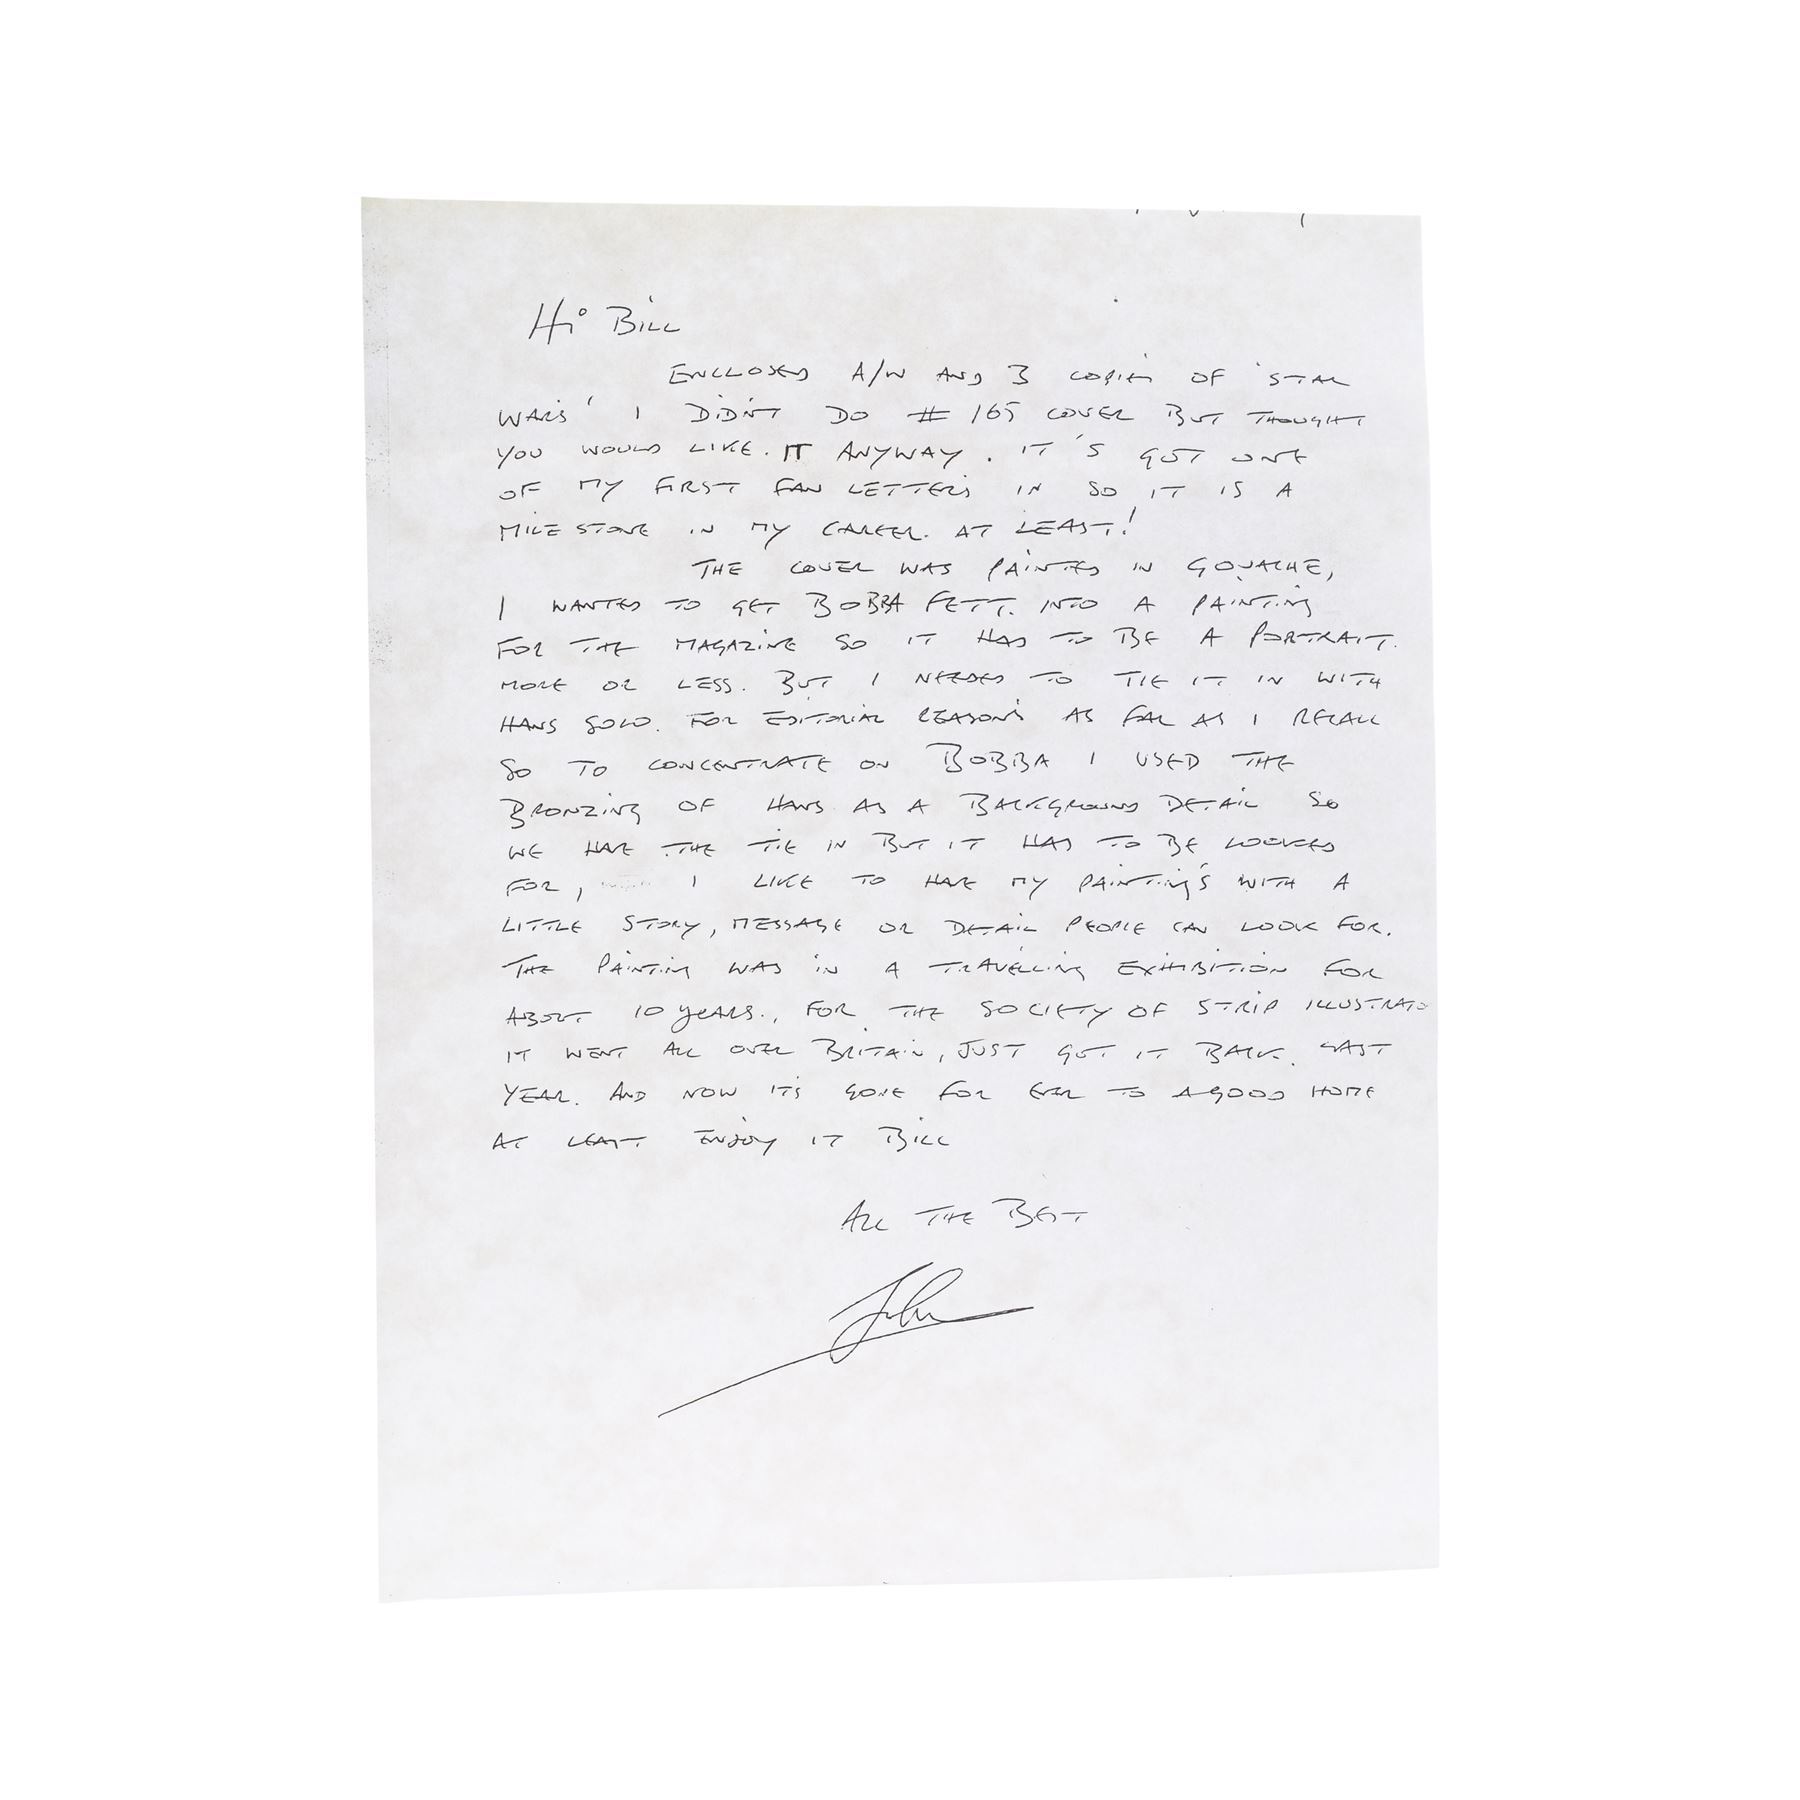 Hi BILL
ENCLOSED A/W AND 3 COPIES OF 'STAR
WARS' I DIDN'T DO # 165 COVER BUT THOUGHT
YOU WOULD LIKE. IT ANYWAY. IT'S GOT ONE
OF MY FIRST FAN LETTERS IN SO IT IS A
MILE STONE IN MY CAREER. AT LEAST!
THE COVER WAS PAINTED IN GOUACHE,
I WANTED TO GET BOBBA FETT. INTO A PAINTING
FOR THE MAGAZINE SO IT HAD TO BE A PORTRAIT.
MORE OR LESS. BUT I NEEDED TO TIE IT IN WITH
HANS SOLO. FOR EDITORIAL REASONS AS FAR AS I RECALL
SO TO CONCENTRATE ON BOBBA I USED THE
BRONZING OF HANS AS A BACKGROUND DETAIL SO
WE HAVE THE TIE IN BUT IT HAD TO BE LOOKED
FOR, I LIKE TO HAVE MY PAINTING'S WITH A
LITTLE STORY, MESSAGE OR DETAIL PEOPLE CAN LOOK FOR.
THE PAINTING WAS IN A TRAVELLING EXHIBITION FOR
ABOUT 10 YEARS., FOR THE SOCIETY OF STRIP ILLUSTRATIO
IT WENT ALL OVER BRITAIN, JUST GOT IT BACK. LAST
YEAR. AND NOW IT'S GONE FOR EVER TO A GOOD HOME
AT LEAST ENJOY IT BILL
ALL THE BEST
John